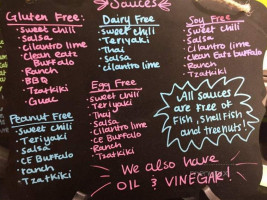 Sauces
Gluten Free:
· Sweet chili
· Salsa
· cilantro lime
· clean eats
Buffalo
· Ranch
· BBQ
· Tzatkiki
· Guac
Dairy Free
· sweet chili
· Teriyaki
· Thai
· Salsa
· cilantro lime
Soy Free
· sweet chili
· Salsa
· cilantro lime
· Clean Eats buffalo
· Ranch
· Tzatkiki
Peanut Free
· Sweet chili
· Teriyaki
· Salsa
· CE Buffalo
· ranch
· Tzatkiki
Egg Free
· Sweet chili
· Teriyaki
· Thai
· Salsa
· Cilantro lime
· CE Buffalo
· Ranch
· Tzatkiki
All sauces
are free of
Fish, Shellfish
and treenuts!
We also have
OIL & VINEGAR!